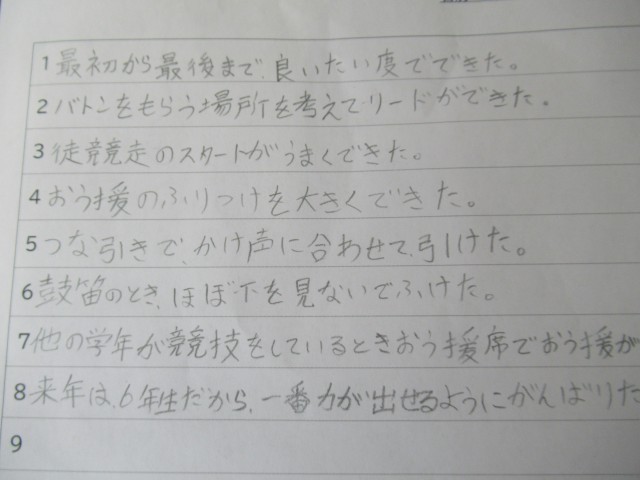 1 最初から最後まで、良いたい度でできた。
2 バトンをもらう場所を考えてリードができた。
3 徒競走のスタートがうまくできた。
4 おう援のふりつけを大きくできた。
5 つな引きで、かけ声に合わせて、引けた。
6 鼓笛のとき、ほぼ下を見ないでふけた。
7 他の学年が競技をしているときおう援席でおう援が
8 来年は、6年生だから、一番力が出せるようにがんばりた
9